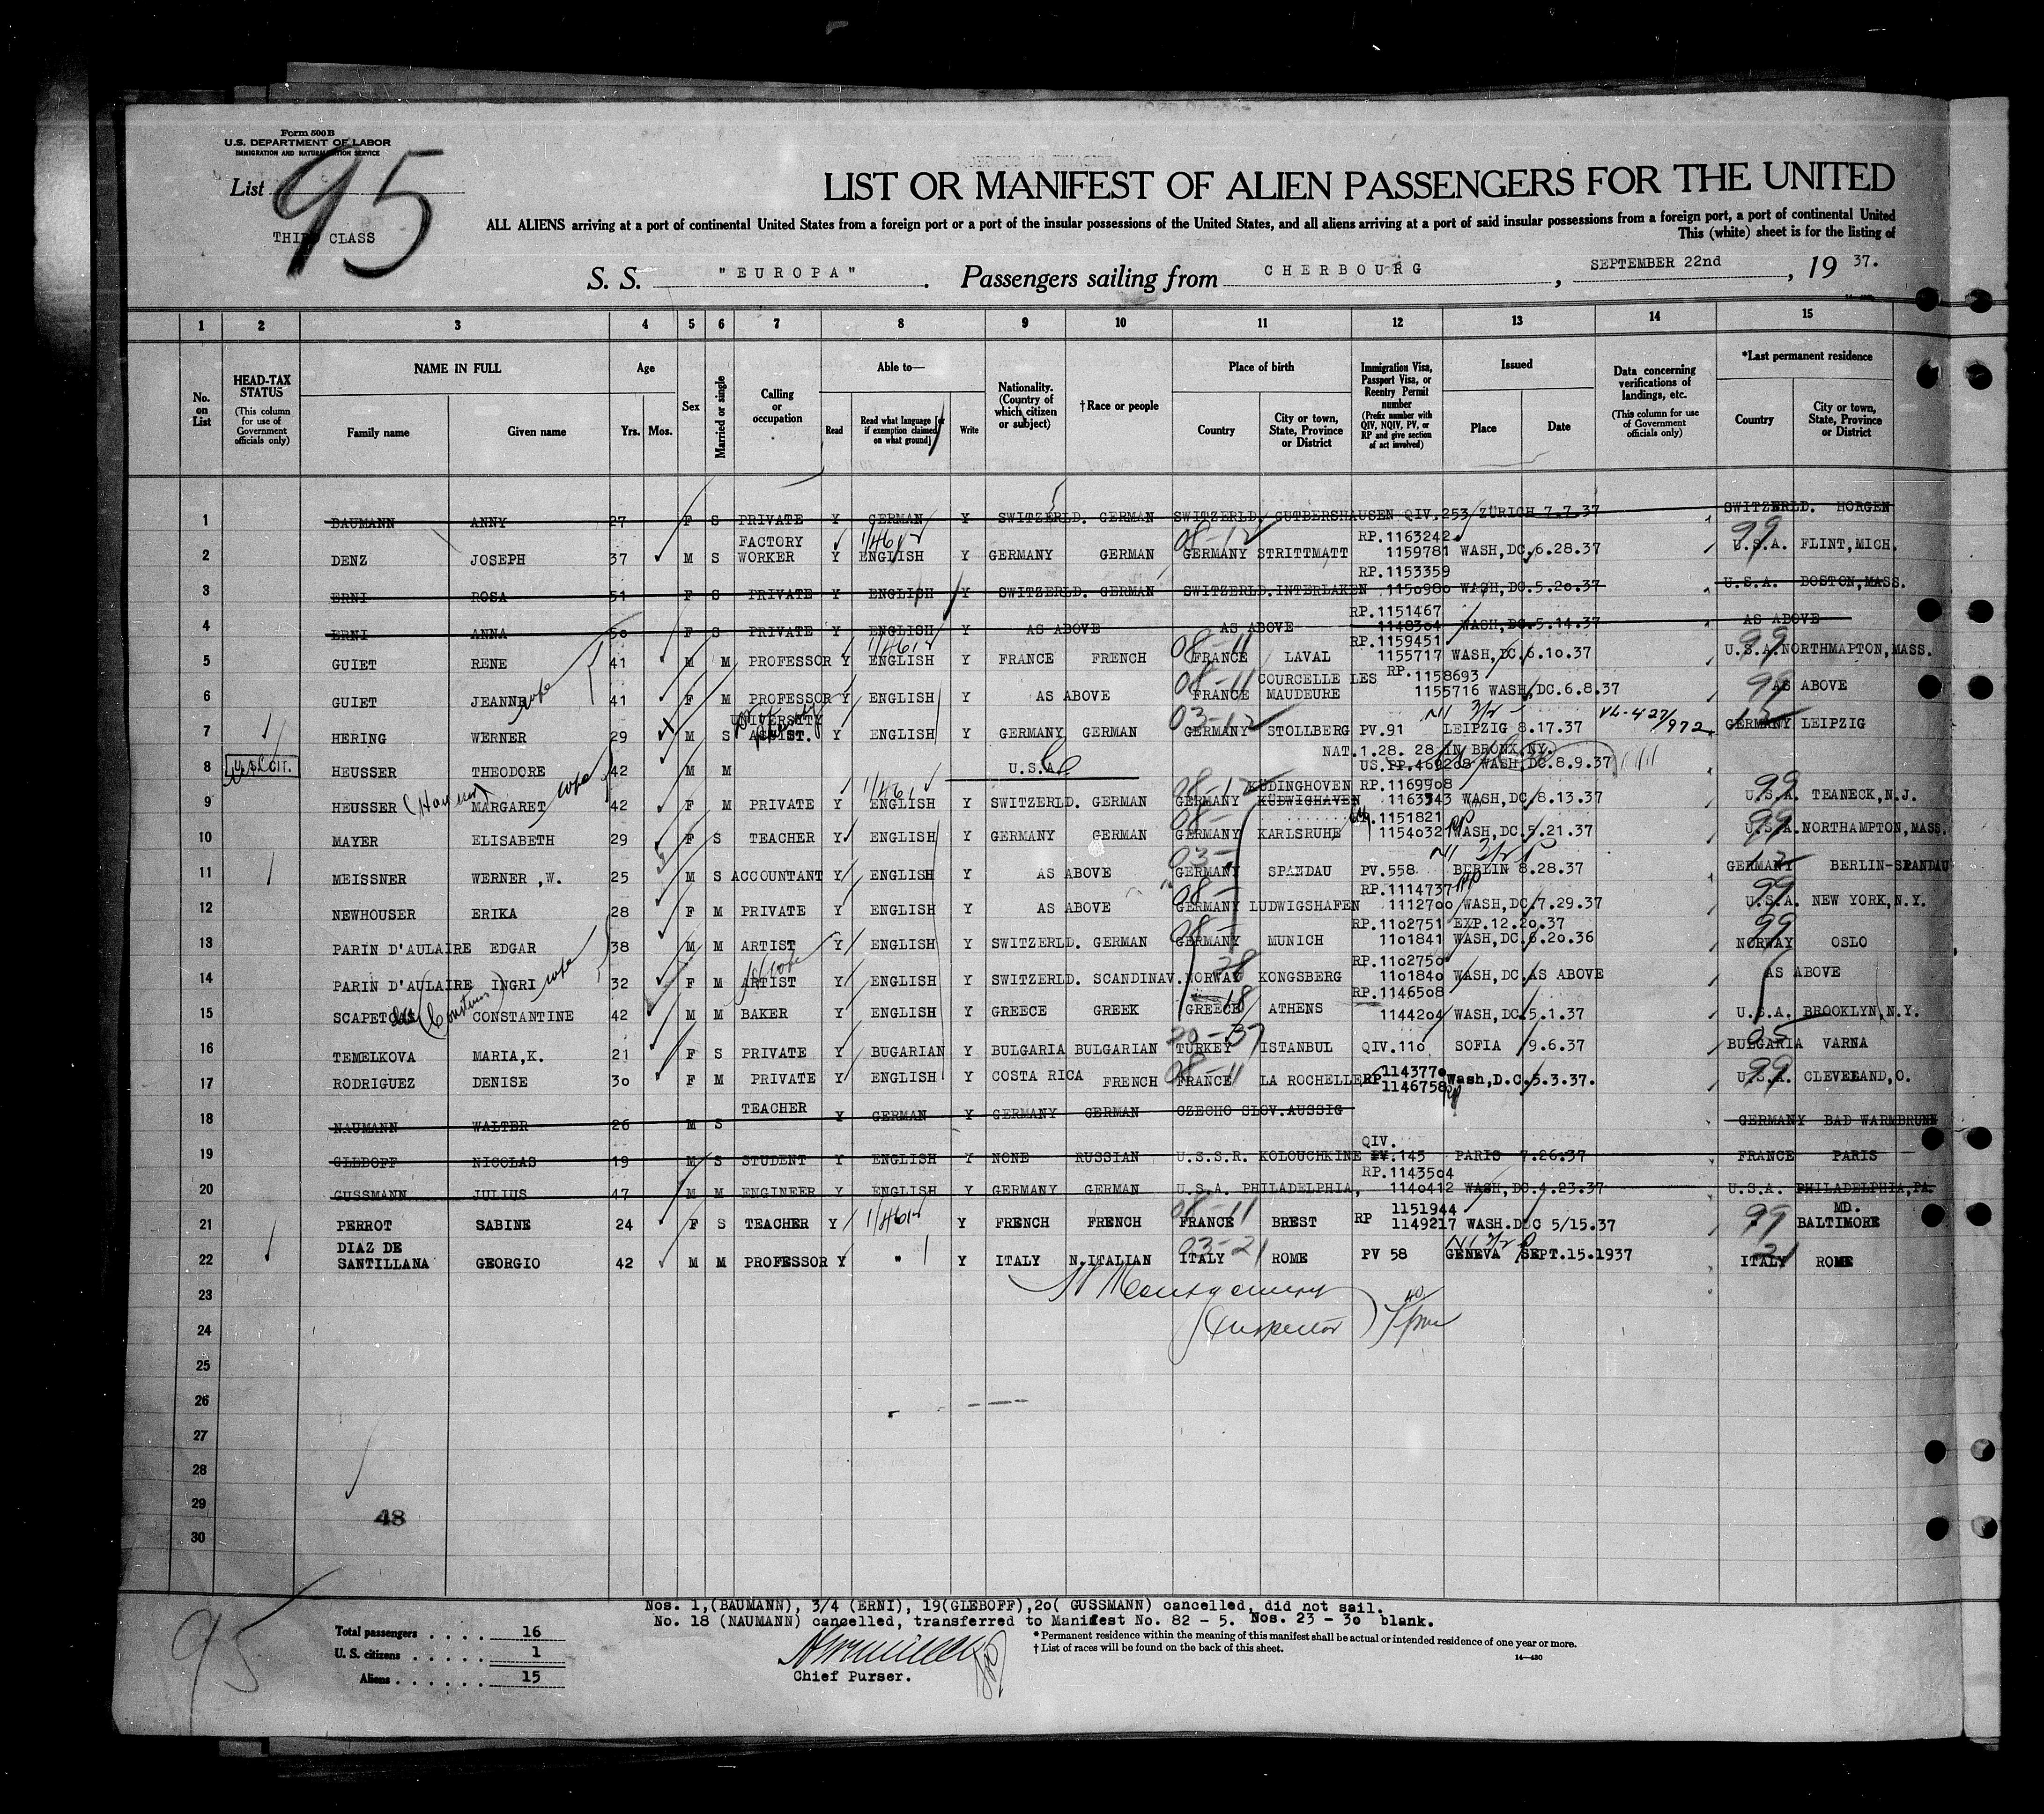 Form 500 B
U.S. DEPARTMENT OF LABOR
IMMIGRATION AND NATURALIZATION SERVICE
List 95
THIRD CLASS
LIST OR MANIFEST OF ALIEN PASSENGERS FOR THE UNITED
ALL ALIENS arriving at a port of continental United States from a foreign port or a port of the insular possessions of the United States, and all aliens arriving at a port of said insular possessions from a foreign port, a port of continental United
This (white) sheet is for the listing of
S. S. "EUROPA". Passengers sailing from CHERBOURG, SEPTEMBER 22nd, 19 37.
1 2 3 4 5 6 7 8 9 10 11 12 13 14 15
No. on List
HEAD-TAX STATUS (This column for use of Government officials only)
NAME IN FULL
Family name Given name
Age
Yrs. Mos.
Sex
Married or single
Calling or occupation
Able to—
Read Read what language [or if exemption claimed, on what ground] Write
Nationality. (Country of which citizen or subject)
† Race or people
Place of birth
Country City or town, State, Province or District
Immigration Visa, Passport Visa, or Reentry Permit number (Prefix number with QIV, NQIV, PV, or RP and give section of act involved)
Issued
Place Date
Data concerning verifications of landings, etc. (This column for use of Government officials only)
*Last permanent residence
Country City or town, State, Province or District
1 BAUMANN ANNY 27 F S PRIVATE Y GERMAN Y SWITZERLD. GERMAN SWITZERLD/ GUTBERSHAUSEN QIV.253 ZÜRICH 7.7.37 SWITZERLD. HORGEN
2 DENZ JOSEPH 37 M S FACTORY WORKER Y ENGLISH Y GERMANY GERMAN 08-12 GERMANY STRITTMATT RP.1163242 1159781 WASH,DC.6.28.37 99 U.S.A. FLINT,MICH.
3 ERNI ROSA 51 F S PRIVATE Y ENGLISH Y SWITZERLD. GERMAN SWITZERLD.INTERLAKEN RP.1153359 1150980 WASH,DC.5.20.37 U.S.A. BOSTON,MASS.
4 ERNI ANNA 50 F S PRIVATE Y ENGLISH Y AS ABOVE AS ABOVE RP.1151467 1148304 WASH,DC.5.14.37 AS ABOVE
5 GUIET RENE 41 M M PROFESSOR Y ENGLISH Y FRANCE FRENCH 08-11 FRANCE LAVAL RP.1159451 1155717 WASH,DC.6.10.37 99 U.S.A. NORTHMAPTON,MASS.
6 GUIET JEANNE wife 41 F M PROFESSOR Y ENGLISH Y AS ABOVE 08-11 FRANCE COURCELLE LES MAUDEURE RP.1158693 1155716 WASH,DC.6.8.37 99 AS ABOVE
7 HERING WERNER 29 M S UNIVERSITY ASSIST. Y ENGLISH Y GERMANY GERMAN 03-12 GERMANY STOLLBERG PV.91 LEIPZIG 8.17.37 VL-427/972 12 GERMANY LEIPZIG
8 U.S. CIT. HEUSSER THEODORE 42 M M U.S.A. NAT.1.28. 28 IN BRONX NY. US.PP.460208 WASH.DC.8.9.37
9 HEUSSER MARGARET wife 42 F M PRIVATE Y ENGLISH Y SWITZERLD. GERMAN 08-12 GERMANY LÜDINGHOVEN RP.1169908 1163343 WASH,DC.8.13.37 99 U.S.A. TEANECK,N.J.
10 MAYER ELISABETH 29 F S TEACHER Y ENGLISH Y GERMANY GERMAN 08- GERMANY KARLSRUHE 1151821 1154032 WASH,DC.5.21.37 99 U.S.A. NORTHAMPTON,MASS.
11 MEISSNER WERNER ,W. 25 M S ACCOUNTANT Y ENGLISH Y AS ABOVE 03- GERMANY SPANDAU PV.558 BERLIN 8.28.37 12 GERMANY BERLIN-SPANDAU
12 NEWHOUSER ERIKA 28 F M PRIVATE Y ENGLISH Y AS ABOVE 08- GERMANY LUDWIGSHAFEN RP.1114737 1112700 WASH,DC.7.29.37 99 U.S.A. NEW YORK,N.Y.
13 PARIN D'AULAIRE EDGAR 38 M M ARTIST Y ENGLISH Y SWITZERLD. GERMAN 08- GERMANY MUNICH RP.1102751 EXP.12.20.37 1101841 WASH,DC.6.20.36 99 NORWAY OSLO
14 PARIN D'AULAIRE INGRI wife 32 F M ARTIST Y ENGLISH Y SWITZERLD. SCANDINAV. NORWAY 28 KONGSBERG RP.1102750 1101840 WASH,DC.AS ABOVE AS ABOVE
15 SCAPETOLAS CONSTANTINE 42 M M BAKER Y ENGLISH Y GREECE GREEK GREECE 18 ATHENS RP.1146508 1144204 WASH,DC.5.1.37 U.S.A. BROOKLYN,N.Y.
16 TEMELKOVA MARIA,K. 21 F S PRIVATE Y BUGARIAN Y BULGARIA BULGARIAN 20-37 TURKEY ISTANBUL QIV.110 SOFIA 9.6.37 05 BULGARIA VARNA
17 RODRIGUEZ DENISE 30 F M PRIVATE Y ENGLISH Y COSTA RICA FRENCH 08-11 FRANCE LA ROCHELLE RP 1143770 1146758 Wash,D.C.5.3.37. 99 U.S.A. CLEVELAND,O.
18 NAUMANN WALTER 26 M S TEACHER Y GERMAN Y GERMANY GERMAN CZECHO SLOV.AUSSIG GERMANY BAD WARMBRUNN
19 GLEBOFF NICOLAS 19 M S STUDENT Y ENGLISH Y NONE RUSSIAN U.S.S.R. KOLOUCHKINE QIV. PV.145 PARIS 7.26.37 FRANCE PARIS
20 GUSSMANN JULIUS 47 M M ENGINEER Y ENGLISH Y GERMANY GERMAN U.S.A. PHILADELPHIA, RP.1143504 1140412 WASH,DC.4.23.37 U.S.A. PHILADELPHIA,PA.
21 PERROT SABINE 24 F S TEACHER Y Y FRENCH FRENCH 08-11 FRANCE BREST RP 1151944 1149217 WASH.D.C 5/15.37 99 MD. BALTIMORE
22 DIAZ DE SANTILLANA GEORGIO 42 M M PROFESSOR Y " Y ITALY N.ITALIAN 03-21 ITALY ROME PV 58 GENEVA SEPT.15.1937 21 ITALY ROME
23 Montgomery
24 Inspector
25
26
27
28
29
48
30
Nos. 1,(BAUMANN), 3/4 (ERNI), 19(GLEBOFF),20( GUSSMANN) cancelled, did not sail.
No. 18 (NAUMANN) cancelled, transferred to Manifest No. 82 - 5. Nos. 23 - 30 blank.
95
Total passengers . . . . 16
U. S. citizens . . . . . 1
Aliens . . . . . . 15
Chief Purser.
* Permanent residence within the meaning of this manifest shall be actual or intended residence of one year or more.
† List of races will be found on the back of this sheet.
14—430